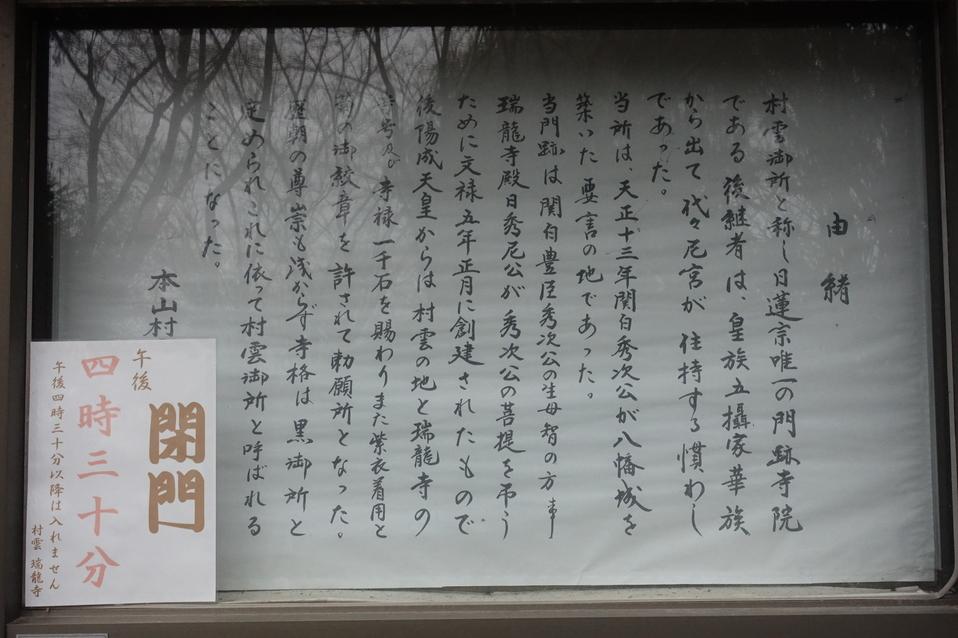 由緒
村雲御所と称し日蓮宗唯一の門跡寺院
である 後継者は、皇族五摂家華族
から出て 代々尼宮が 住持する慣わし
であった。
当所は、天正十三年関白秀次公が八幡城を
築いた 要害の地であった。
当門跡は関白豊臣秀次公の生母智の方事
瑞龍寺殿日秀尼公が 秀次公の菩提を弔う
ために文禄五年正月に創建されたもので
後陽成天皇からは村雲の地と瑞龍寺の
寺号及び寺禄一千石を賜わりまた紫衣着用と
菊の御紋章を許されて勅願所となった。
歴朝の尊崇も浅からず寺格は黒御所と
定められこれに依って村雲御所と呼ばれる
ことになった。
本山村
午後
閉門
四時三十分
午後四時三十分以降は入れません
村雲 瑞龍寺